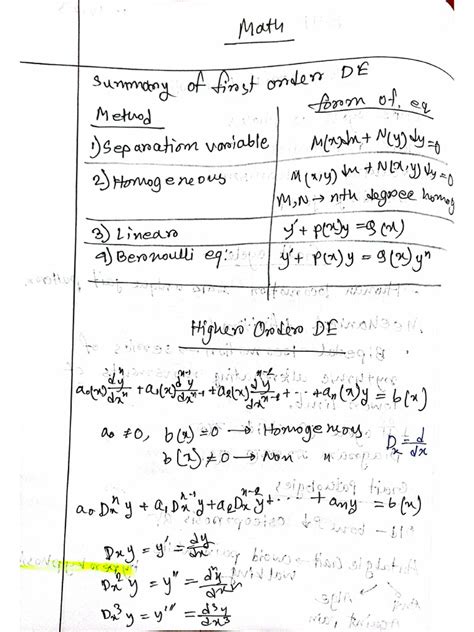 Math
Summary of first order DE
Method
form of. eq
1) Separation variable
M(x)dx + N(y)dy=0
2) Homogeneous
M(x,y)dx + N(x,y)dy=0
M,N → nth degree homog
3) Linear
y' + p(x)y = Q(x)
4) Bernoulli eq:
y' + P(x)y = Q(x)yⁿ
Higher Order DE
a₀(x) dⁿy/dxⁿ + a₁(x) dⁿ⁻¹y/dxⁿ⁻¹ + a₂(x) dⁿ⁻²y/dxⁿ⁻² + ··· + aₙ(x)y = b(x)
a₀ ≠0, b(x) = 0 → Homogenous
Dₓ = d/dx
b(x) ≠ 0 → Non "
a₀ Dₓⁿ y + a₁ Dₓⁿ⁻¹ y + a₂ Dₓⁿ⁻² y + ···· + aₙ y = b(x)
Dₓ y = y' = dy/dx
Dₓ² y = y'' = d²y/dx²
Dₓ³ y = y''' = d³y/dx³